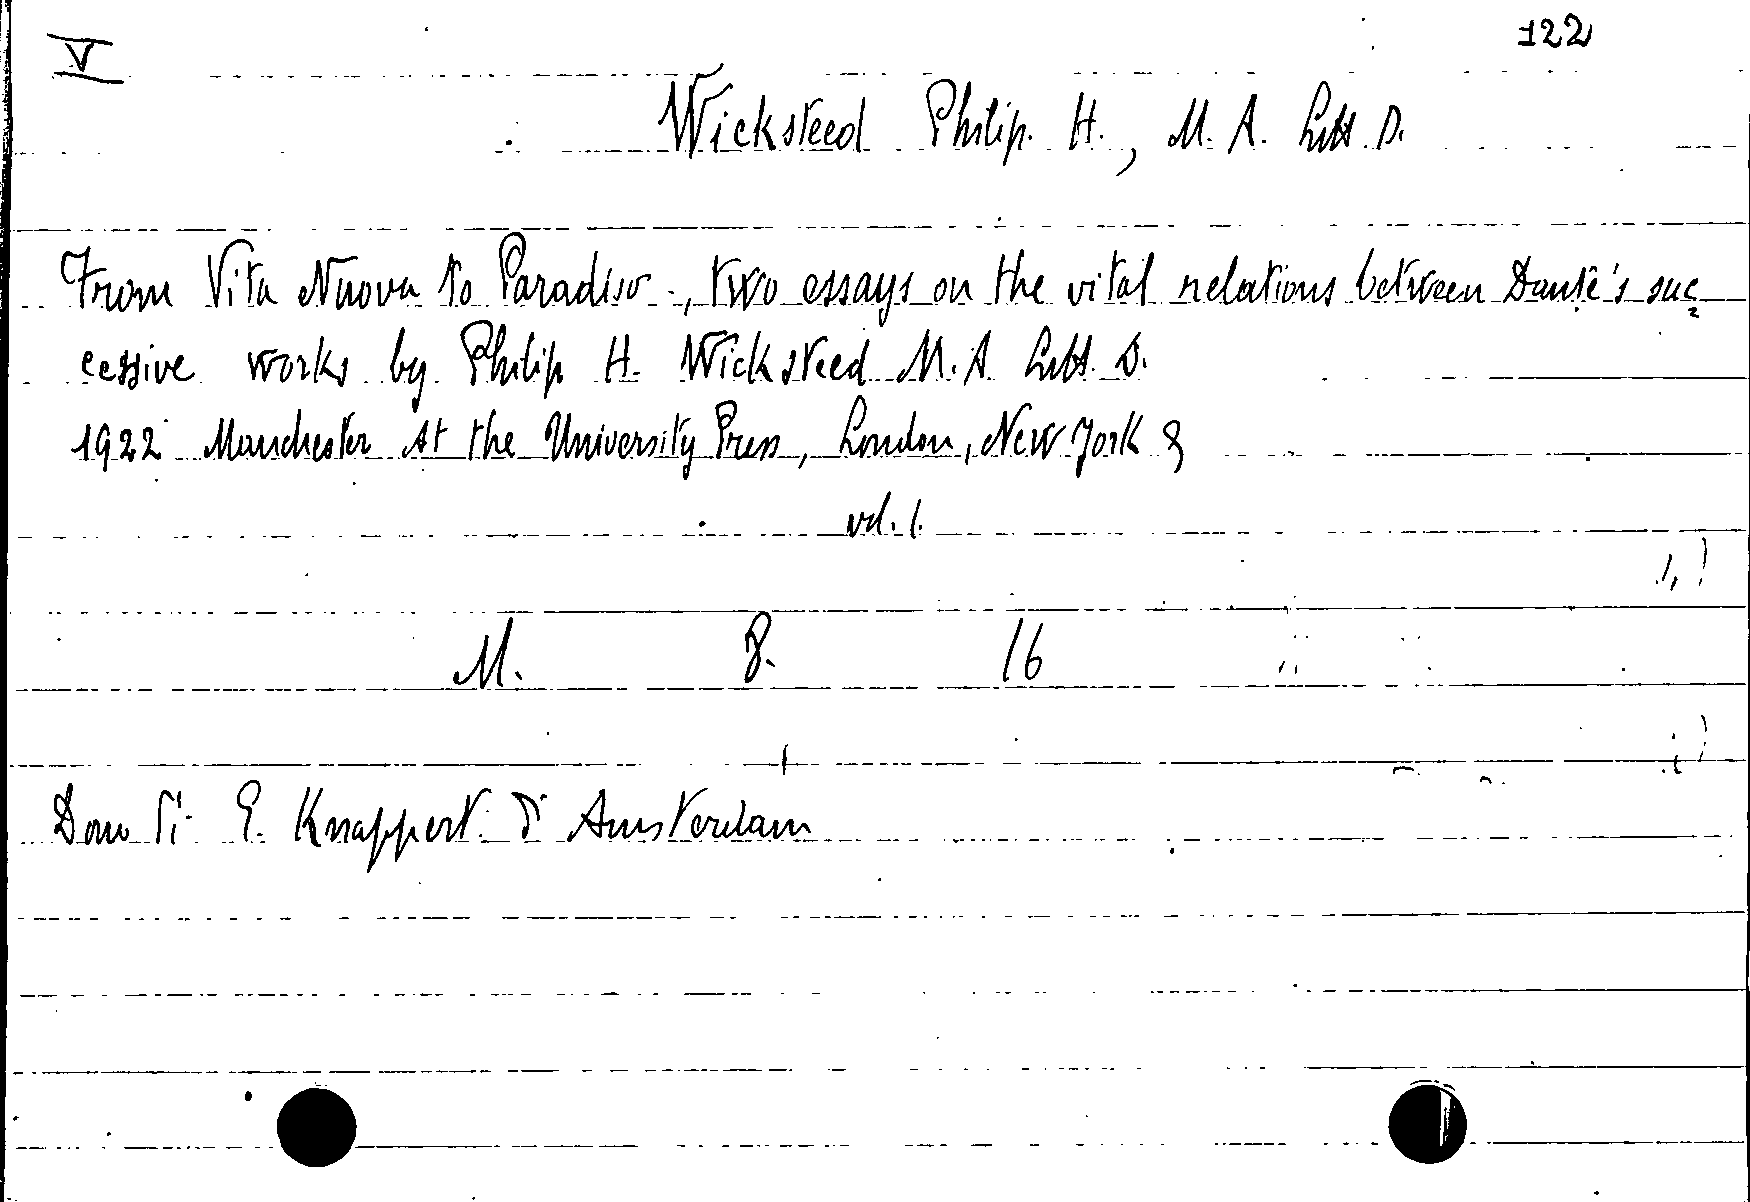 V
122
Wicksteed Philip. H., M. A. Litt. D.
From Vita Nuova to Paradiso., two essays on the vital relations between Dante's suc
cessive works by Philip H. Wicksteed M. A. Litt. D.
1922 Manchester At the University Press, London, New York &
vol. 1.
M. 8. 16
Dono di E. Knappert. d'Amsterdam